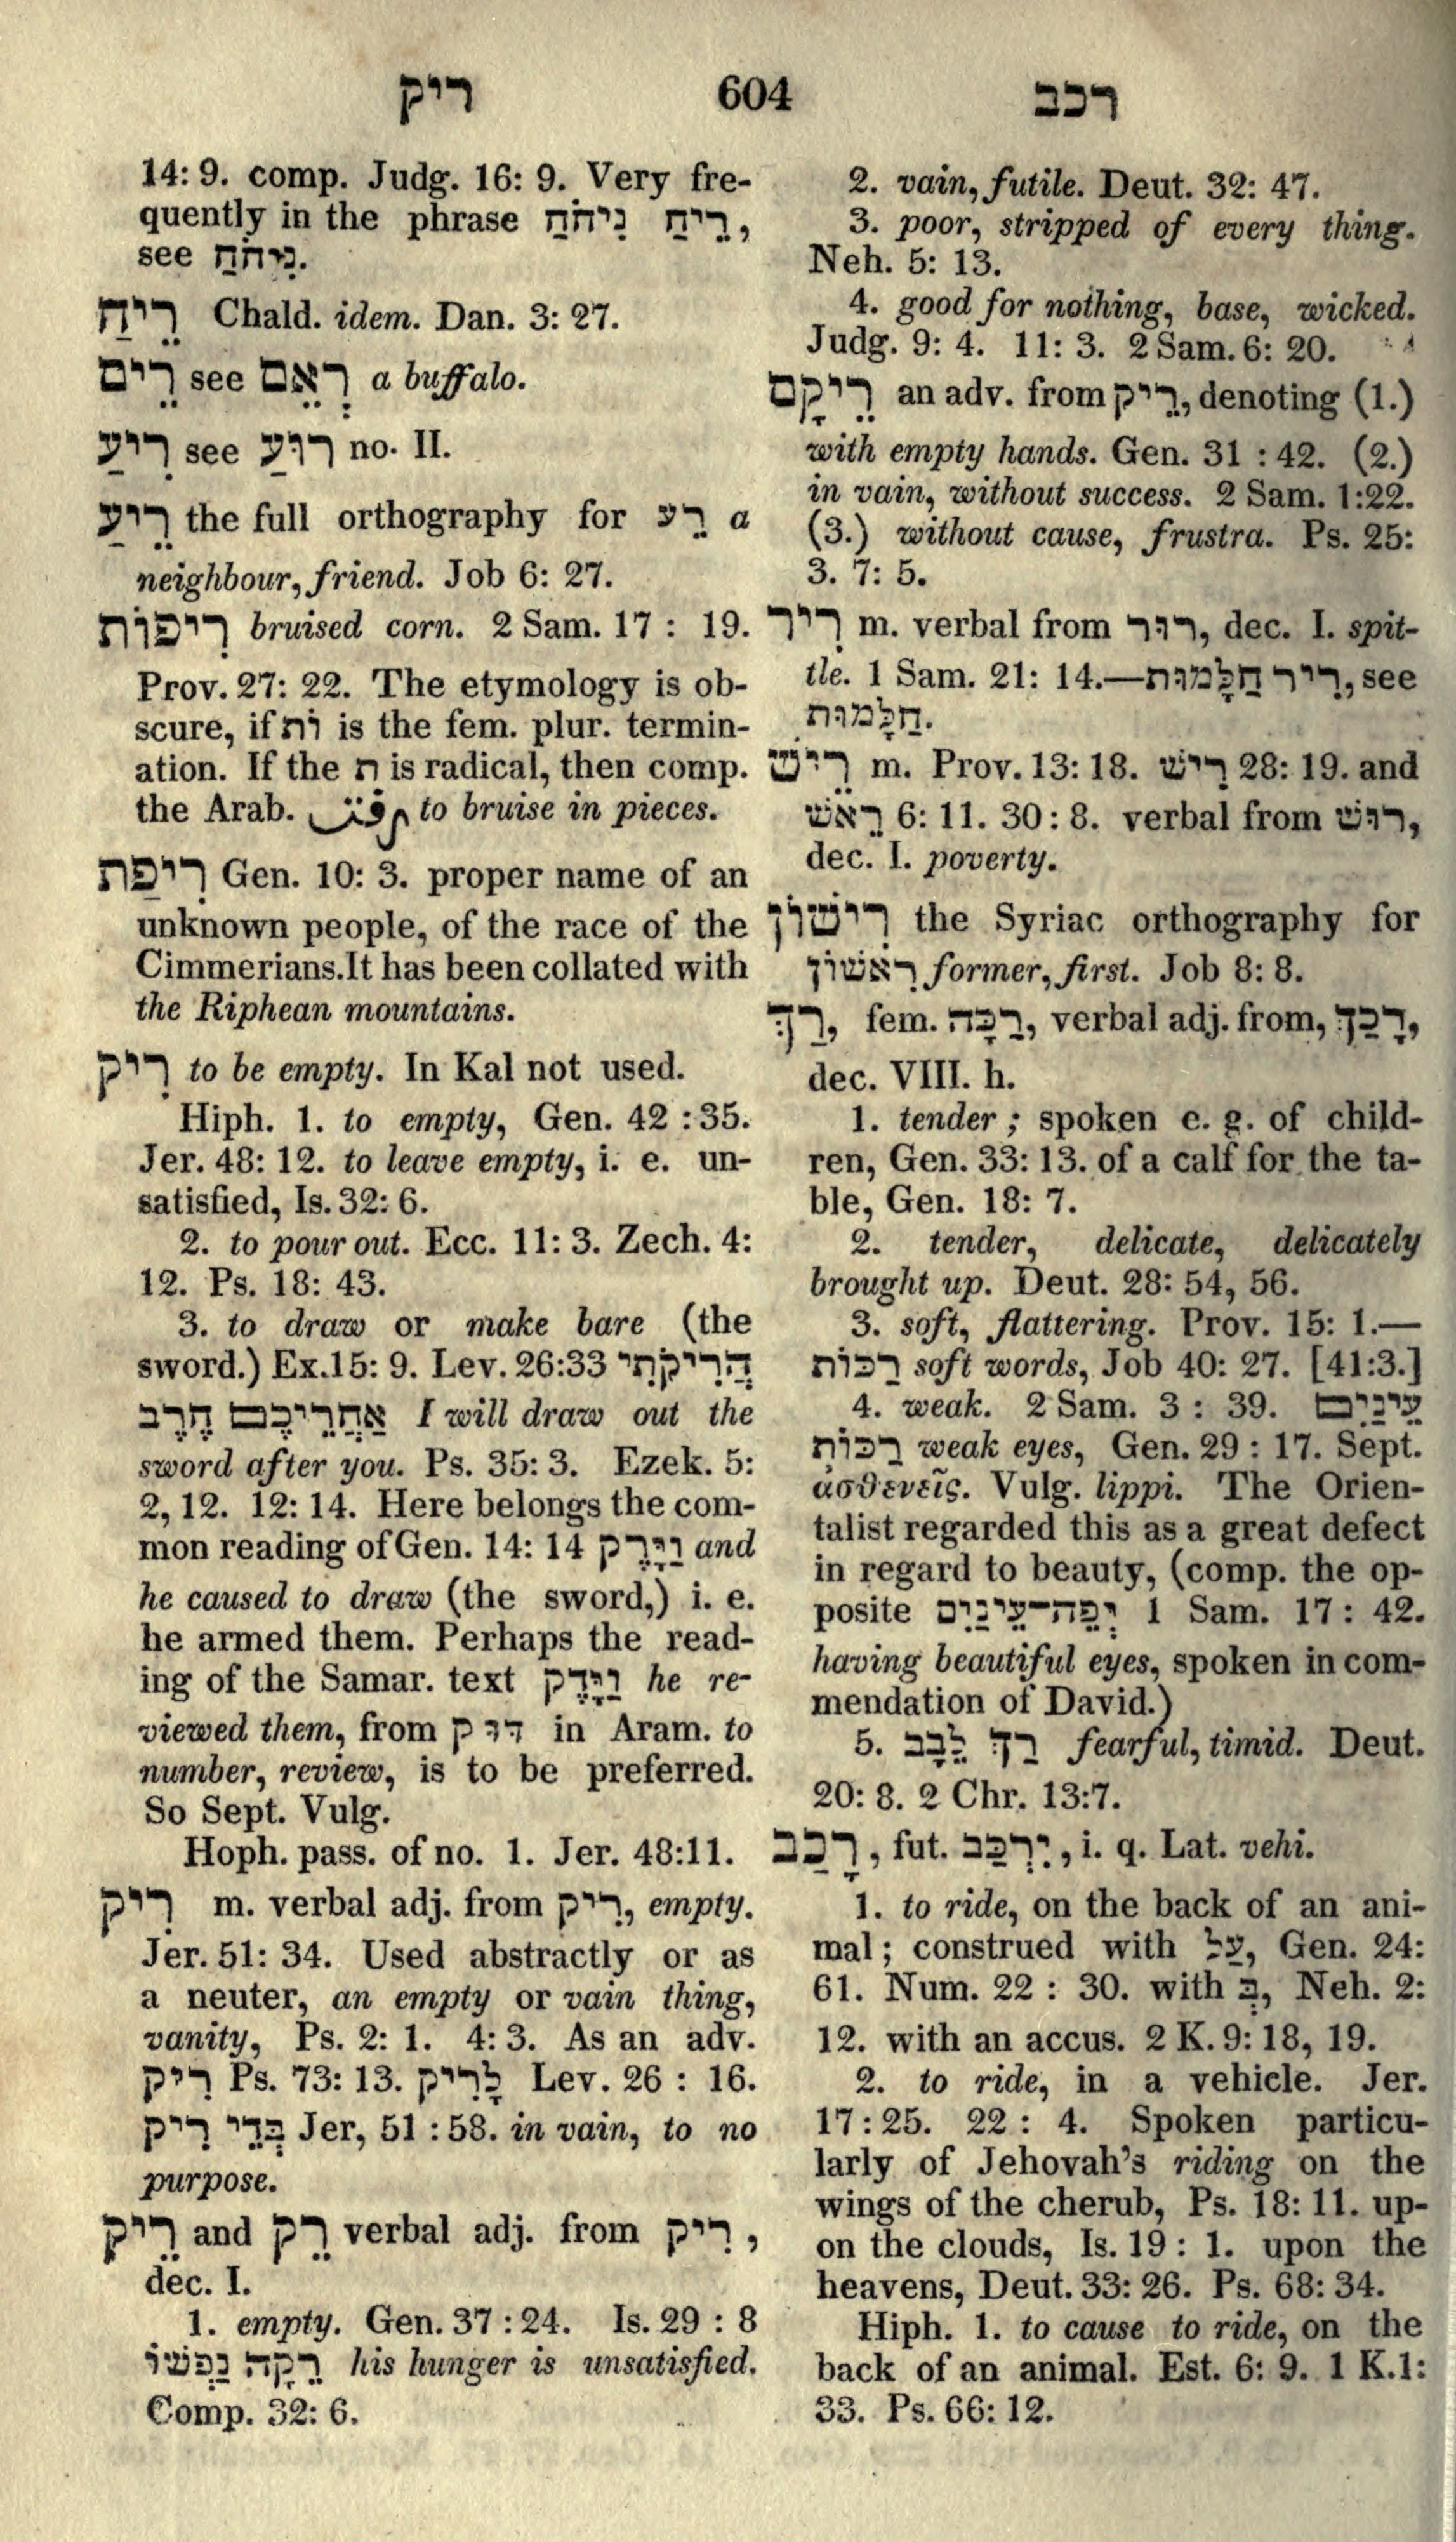 ריק 604 רכב
14: 9. comp. Judg. 16: 9. Very fre-
quently in the phrase רֵיחַ נִיחֹחַ,
see נִיחֹחַ.
רֵיחַ Chald. idem. Dan. 3: 27.
רֵים see רְאֵם a buffalo.
רִיעַ see רוּעַ no. II.
רֵיעַ the full orthography for רֵעַ a
neighbour, friend. Job 6: 27.
רִיפוֹת bruised corn. 2 Sam. 17 : 19.
Prov. 27: 22. The etymology is ob-
scure, if וֹת is the fem. plur. termin-
ation. If the ת is radical, then comp.
the Arab. رفت to bruise in pieces.
רִיפַת Gen. 10: 3. proper name of an
unknown people, of the race of the
Cimmerians. It has been collated with
the Riphean mountains.
רִיק to be empty. In Kal not used.
Hiph. 1. to empty, Gen. 42 : 35.
Jer. 48: 12. to leave empty, i. e. un-
satisfied, Is. 32: 6.
2. to pour out. Ecc. 11: 3. Zech. 4:
12. Ps. 18: 43.
3. to draw or make bare (the
sword.) Ex. 15: 9. Lev. 26:33 הֲרִיקֹתִי
אַחֲרֵיכֶם חֶרֶב I will draw out the
sword after you. Ps. 35: 3. Ezek. 5:
2, 12. 12: 14. Here belongs the com-
mon reading of Gen. 14: 14 וַיָּרֶק and
he caused to draw (the sword,) i. e.
he armed them. Perhaps the read-
ing of the Samar. text וַיָּדֶק he re-
viewed them, from דּוּק in Aram. to
number, review, is to be preferred.
So Sept. Vulg.
Hoph. pass. of no. 1. Jer. 48:11.
רִיק m. verbal adj. from רִיק, empty.
Jer. 51: 34. Used abstractly or as
a neuter, an empty or vain thing,
vanity, Ps. 2: 1. 4: 3. As an adv.
רִיק Ps. 73: 13. לָרִיק Lev. 26 : 16.
בְּדֵי רִיק Jer, 51 : 58. in vain, to no
purpose.
רֵיק and רֵק verbal adj. from רִיק,
dec. I.
1. empty. Gen. 37 : 24. Is. 29 : 8
רֵקָה נַפְשׁוֹ his hunger is unsatisfied.
Comp. 32: 6.
2. vain, futile. Deut. 32: 47.
3. poor, stripped of every thing.
Neh. 5: 13.
4. good for nothing, base, wicked.
Judg. 9: 4. 11: 3. 2 Sam. 6: 20.
רֵיקָם an adv. from רֵיק, denoting (1.)
with empty hands. Gen. 31 : 42. (2.)
in vain, without success. 2 Sam. 1:22.
(3.) without cause, frustra. Ps. 25:
3. 7: 5.
רִיר m. verbal from רוּר, dec. I. spit-
tle. 1 Sam. 21: 14.—רִיר חַלָּמוּת, see
חַלָּמוּת.
רֵישׁ m. Prov. 13: 18. רִישׁ 28: 19. and
רֵאשׁ 6: 11. 30 : 8. verbal from רוּשׁ,
dec. I. poverty.
רִישׁוֹן the Syriac orthography for
רִאשׁוֹן former, first. Job 8: 8.
רַךְ, fem. רַכָּה, verbal adj. from, רָכַךְ,
dec. VIII. h.
1. tender ; spoken e. g. of child-
ren, Gen. 33: 13. of a calf for the ta-
ble, Gen. 18: 7.
2. tender, delicate, delicately
brought up. Deut. 28: 54, 56.
3. soft, flattering. Prov. 15: 1.—
רַכּוֹת soft words, Job 40: 27. [41:3.]
4. weak. 2 Sam. 3 : 39. עֵינַיִם
רַכּוֹת weak eyes, Gen. 29 : 17. Sept.
ἀσθενεῖς. Vulg. lippi. The Orien-
talist regarded this as a great defect
in regard to beauty, (comp. the op-
posite יְפֵה־עֵינַיִם 1 Sam. 17 : 42.
having beautiful eyes, spoken in com-
mendation of David.)
5. רַךְ לֵבָב fearful, timid. Deut.
20: 8. 2 Chr. 13:7.
רָכַב, fut. יִרְכַּב, i. q. Lat. vehi.
1. to ride, on the back of an ani-
mal ; construed with עַל, Gen. 24:
61. Num. 22 : 30. with בְּ, Neh. 2:
12. with an accus. 2 K. 9: 18, 19.
2. to ride, in a vehicle. Jer.
17 : 25. 22 : 4. Spoken particu-
larly of Jehovah's riding on the
wings of the cherub, Ps. 18: 11. up-
on the clouds, Is. 19 : 1. upon the
heavens, Deut. 33: 26. Ps. 68: 34.
Hiph. 1. to cause to ride, on the
back of an animal. Est. 6: 9. 1 K. 1:
33. Ps. 66: 12.